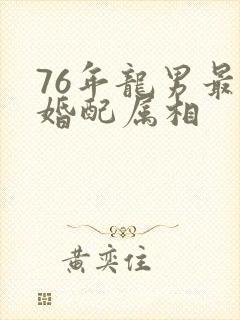 76年龍男最
婚配属相
黄奕住